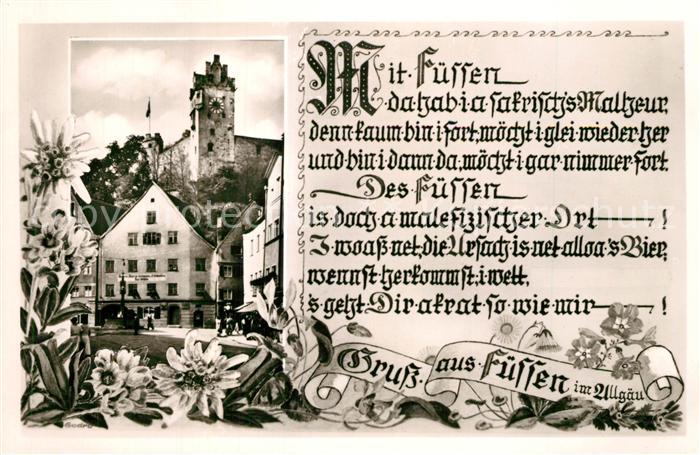 Mit Füssen
da hab i a sakrisch's Malheur,
denn kaum bin i fort, möcht i glei wieder her
und bin i dann da, möcht i gar nimmer fort.
Des Füssen
is doch a malefizischer Ort!
I woaß net, die Ursach is net alloa's Bier,
wennst herkommst, i wett,
s geht Dir akrat so wie mir!
Gruß aus Füssen im Allgäu